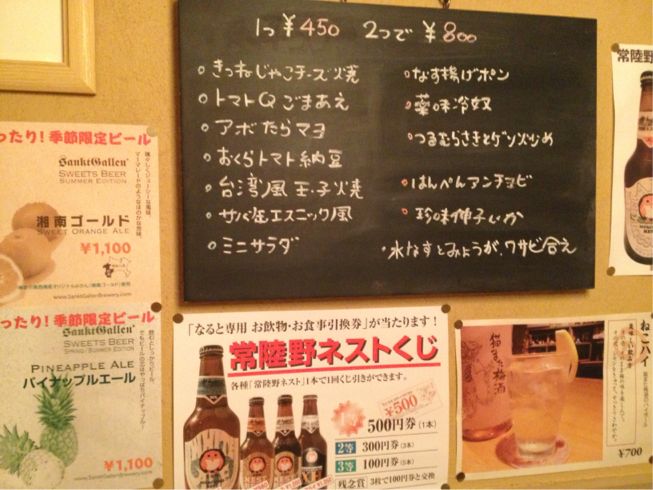 1つ ¥450 2つで ¥800
○きつねじゃこチーズ焼
○トマトQごまあえ
○アボたらマヨ
○おくらトマト納豆
○台湾風玉子焼
○サバ缶エスニック風
○ミニサラダ
○なす揚げポン
○薬味冷奴
○つるむらさきとゲソ炒め
○はんぺんアンチョビ
○珍味伸子いか
・水なすとみょうが、ワサビ合え
ったり!季節限定ビール
SanktGallen
SWEETS BEER
SUMMER EDITION
湘南ゴールド
SWEET ORANGE ALE
¥1,100
www.SanktGallenBrewery.com
ったり!季節限定ビール
SanktGallen
SWEETS BEER
PINEAPPLE ALE
パイナップルエール
¥1,100
「なると専用 お飲物・お食事引換券」が当たります!
常陸野ネストくじ
各種「常陸野ネスト」1本で1回くじ引きができます。
¥500
500円券(1本)
2等 300円券(3本)
3等 100円券(5本)
残念賞 3枚で100円券と交換
常陸野
ねこハイ
猫 梅酒
¥700